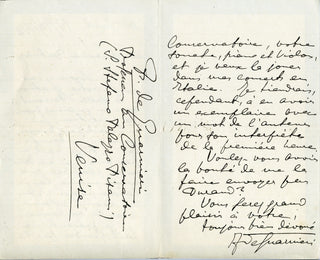 Conservatoire, votre
sonate, piano et violon,
et je veux la jouer
dans mes concerts en
Italie. Je tiendrais,
cependant, à en avoir
un exemplaire avec
un mot de l'auteur
pour son interprète
de la première heure
Voulez-vous avoir
la bonté de me la
faire envoyer par
Durand?
Vous ferez grand
plaisir à votre,
toujours bien dévoué
F. De Guarnieri
F. de Guarnieri
Professeur au Conservatoire
(S. Stefano Palazzo Pisani)
Venise